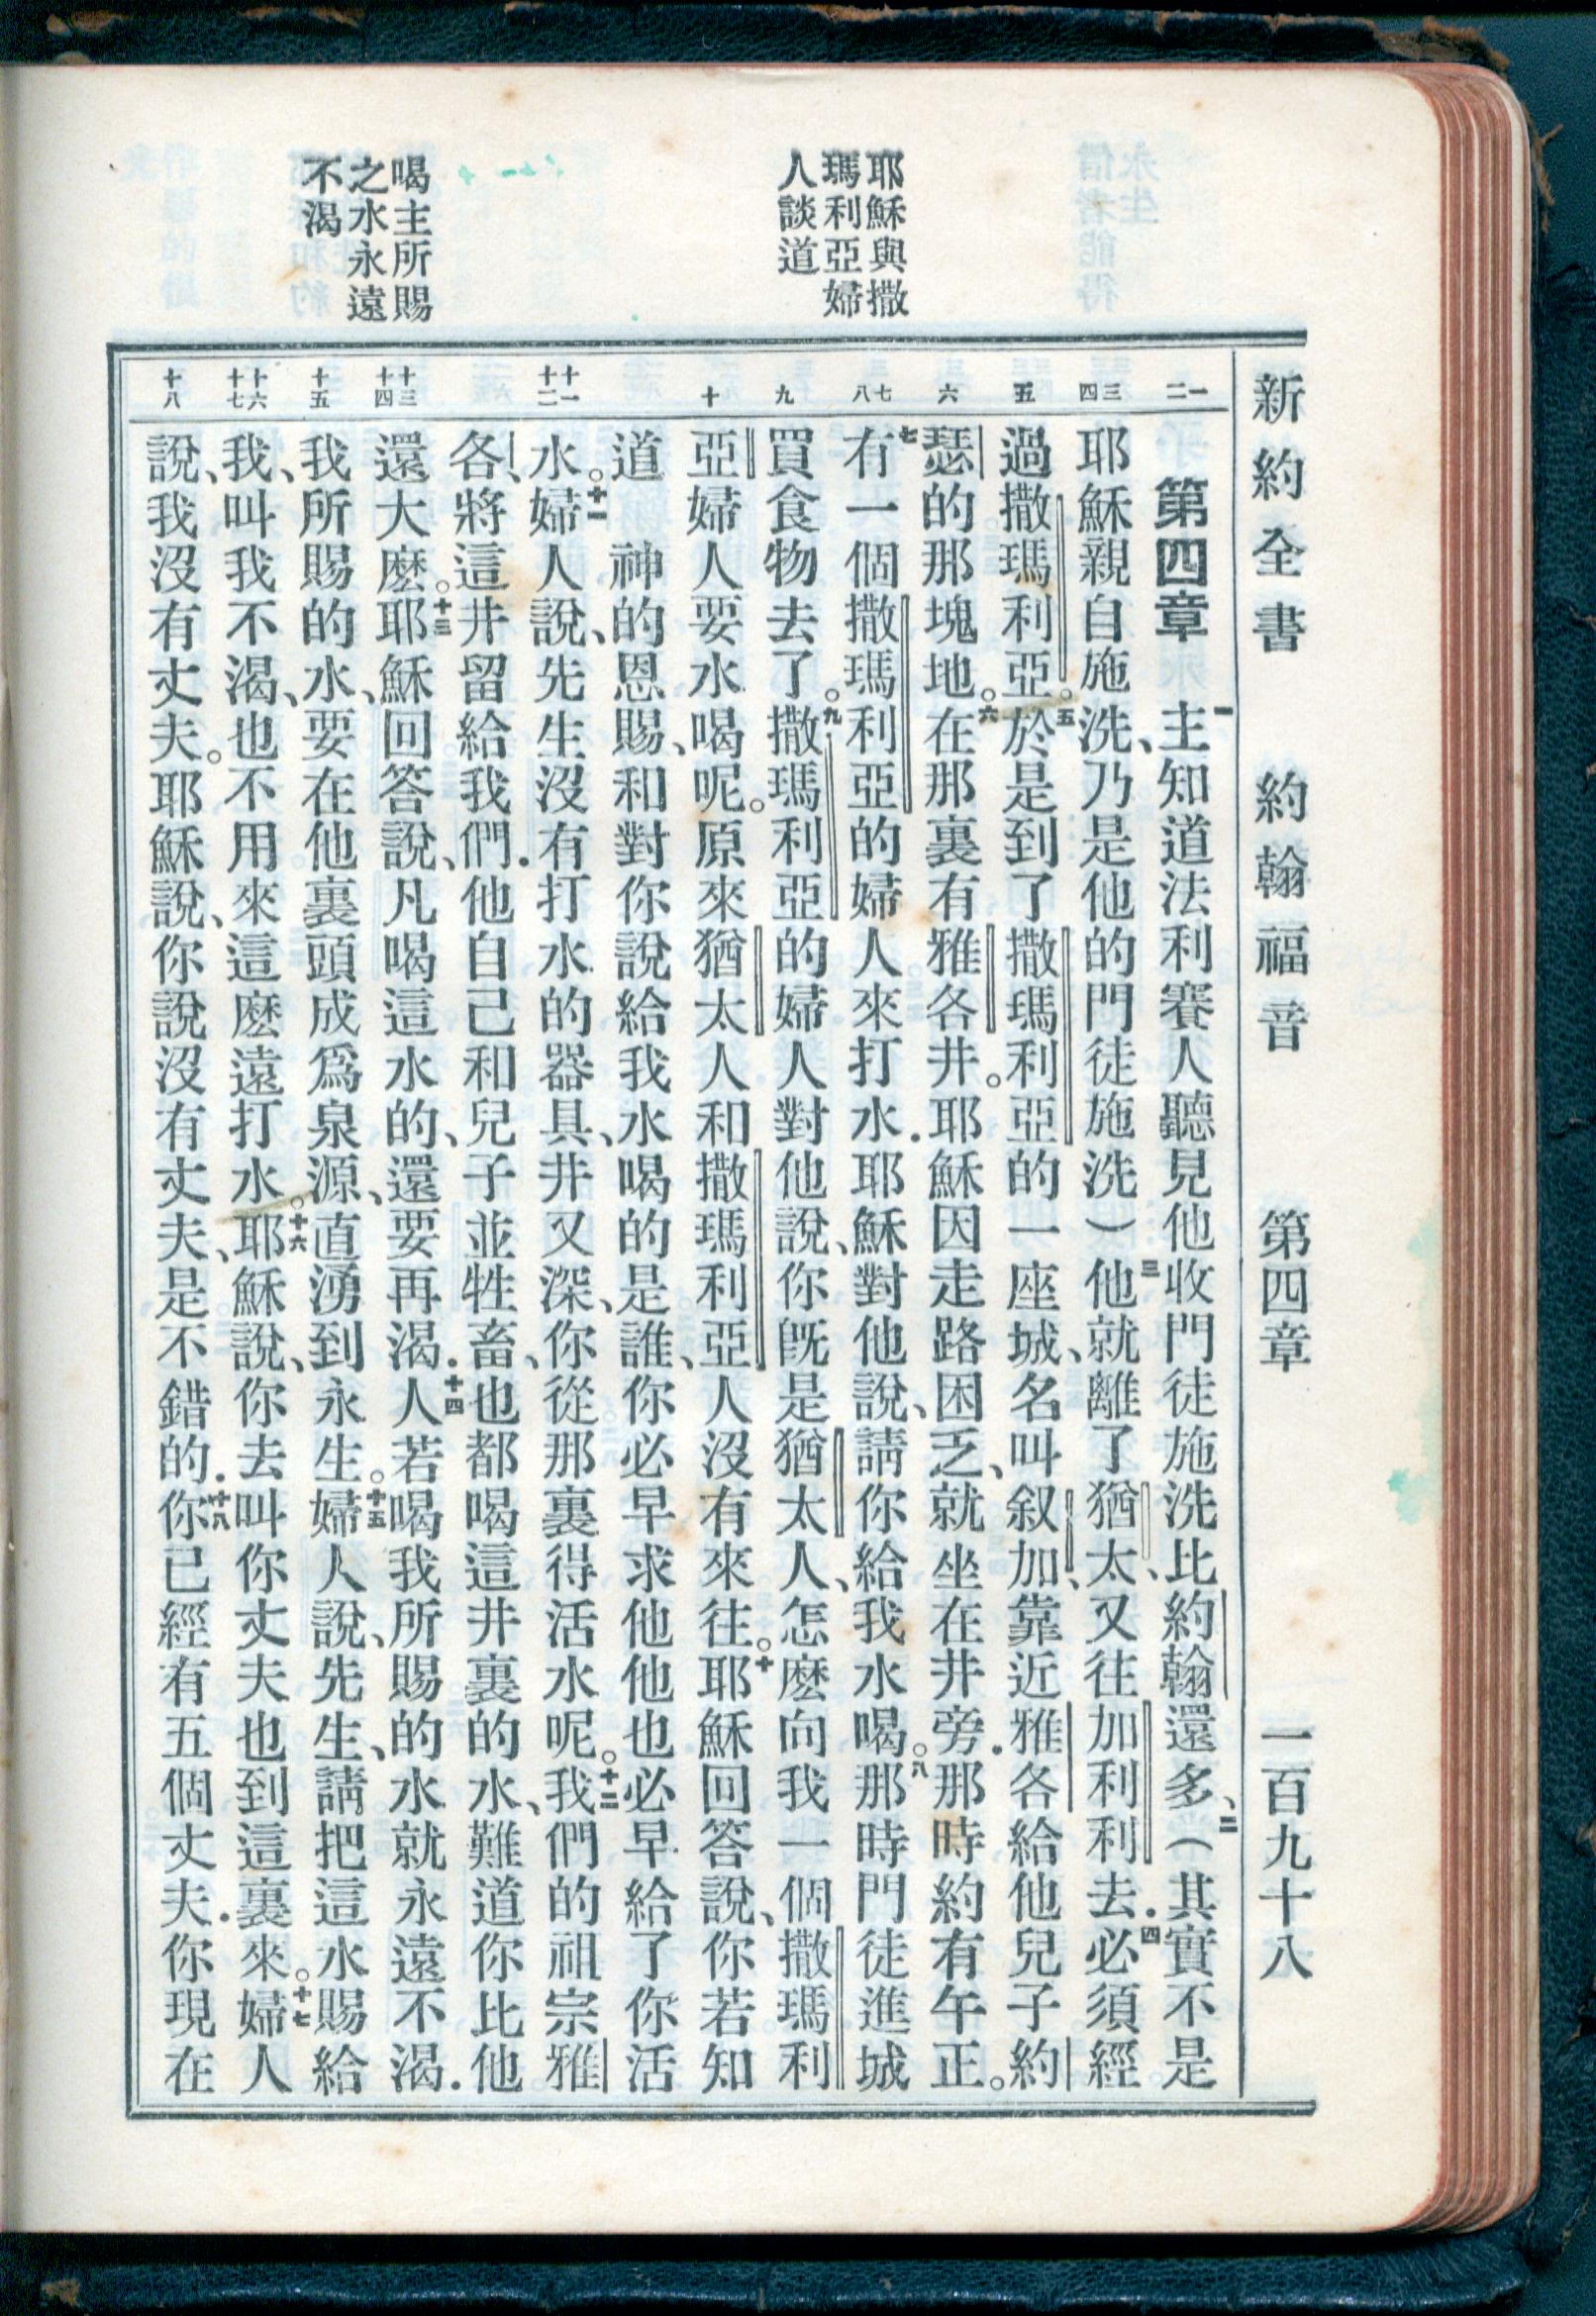 新約全書　約翰福音　第四章　一百九十八
耶穌與撒
瑪利亞婦
人談道
喝主所賜
之水永遠
不渴
一 二 三 四 五 六 七 八 九 十 十一 十二 十三 十四 十五 十六 十七 十八
第四章　一主知道法利賽人聽見他收門徒施洗比約翰還多、二（其實不是
耶穌親自施洗、乃是他的門徒施洗）三他就離了猶太、又往加利利去．四必須經
過撒瑪利亞。五於是到了撒瑪利亞的一座城、名叫叙加、靠近雅各給他兒子約
瑟的那塊地。六在那裏有雅各井。耶穌因走路困乏、就坐在井旁．那時約有午正。
七有一個撒瑪利亞的婦人來打水．耶穌對他說、請你給我水喝。八那時門徒進城
買食物去了。九撒瑪利亞的婦人對他說、你旣是猶太人、怎麽向我一個撒瑪利
亞婦人要水喝呢。原來猶太人和撒瑪利亞人沒有來往。十耶穌回答說、你若知
道　神的恩賜、和對你說給我水喝的是誰、你必早求他他也必早給了你活
水。十一婦人說、先生沒有打水的器具、井又深、你從那裏得活水呢。十二我們的祖宗雅
各、將這井留給我們．他自己和兒子並牲畜、也都喝這井裏的水、難道你比他
還大麽。十三耶穌回答說、凡喝這水的、還要再渴．十四人若喝我所賜的水就永遠不渴．
我所賜的水、要在他裏頭成爲泉源、直湧到永生。十五婦人說、先生、請把這水賜給
我、叫我不渴、也不用來這麽遠打水。十六耶穌說、你去叫你丈夫也到這裏來。十七婦人
說、我沒有丈夫。耶穌說、你說沒有丈夫、是不錯的．十八你已經有五個丈夫．你現在